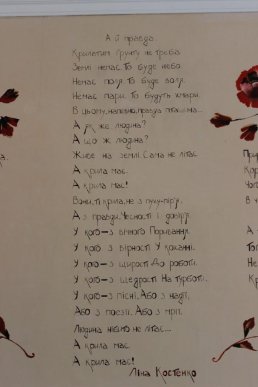 А й правда
Крилатим ґрунту не треба.
Землі немає, То буде небо.
Немає поля, То буде воля.
Немає пари, То будуть хмари.
В цьому, напевно, правда пташина...
А як же людина?
А що ж людина?
Живе на землі. Сама не літає.
А крила має.
А крила має!
Вони, ті крила, не з пуху-пір'я,
А з правди, Чесності і довір'я.
У кого – з вічного Поривання.
У кого – з вірності У коханні.
У кого – з щирості До роботи.
У кого – з щедрості На турботи.
У кого – з пісні, Або з надії,
Або з поезії, Або з мрії.
Людина нібито не літає...
А крила має.
А крила має!
Ліна Костенко